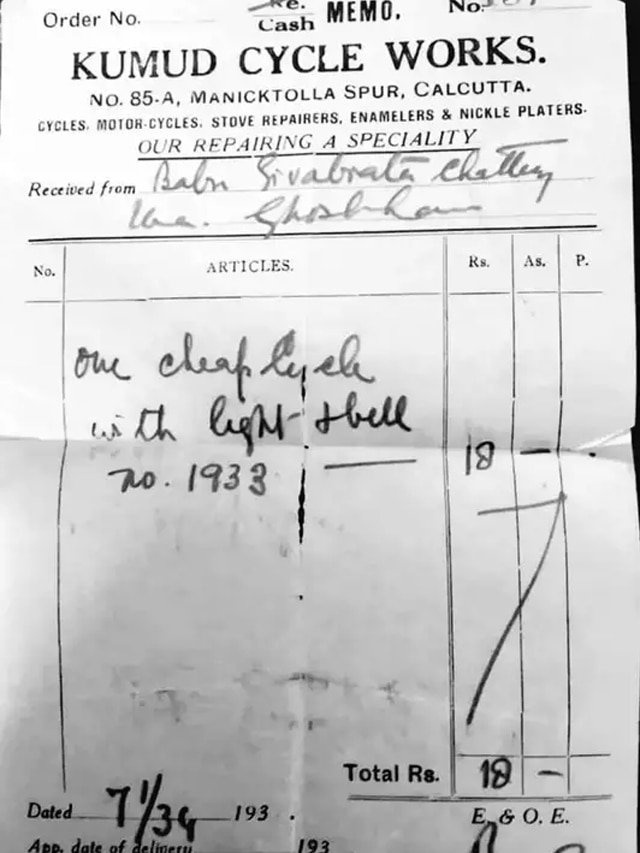 Order No. Cash MEMO. No.
KUMUD CYCLE WORKS.
NO. 85-A, MANICKTOLLA SPUR, CALCUTTA.
CYCLES, MOTOR-CYCLES, STOVE REPAIRERS, ENAMELERS & NICKLE PLATERS.
OUR REPAIRING A SPECIALITY
Received from Babu Sivabrata

No. ARTICLES. Rs. As. P.
one cheap Cycle
with light & bell
no. 1933 — 18 — .
Total Rs. 18 —
Dated 7/1/34 193 .
E. & O. E.
App. date of delivery 193